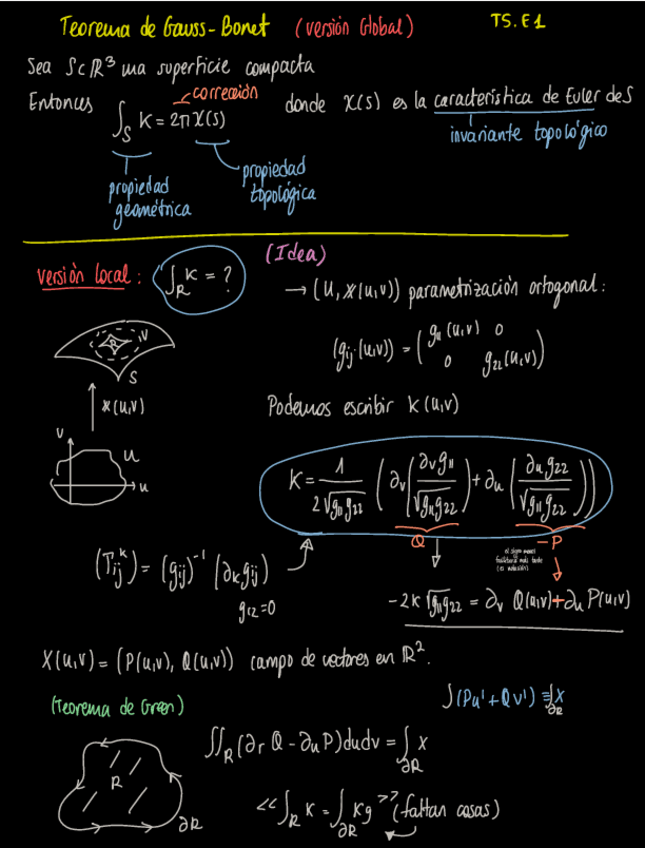 Teorema de Gauss-Bonet (versión Global) TS. E1
Sea S⊂ℝ³ una superficie compacta
corrección
Entonces ∫_S K = 2π χ(S) donde χ(S) es la característica de Euler de S
invariante topológico
propiedad geométrica
propiedad topológica
(Idea)
versión local: ∫_R K = ?
→ (U, 𝕏(u,v)) parametrización ortogonal:
(gij(u,v)) = ( g11(u,v) 0
0 g22(u,v) )
R V
S
𝕏(u,v)
Podemos escribir K(u,v)
v
U
u
K = 1 / (2√(g11g22)) ( ∂v( ∂v g11 / √(g11g22) ) + ∂u ( ∂u g22 / √(g11g22) ) )
Q -P
(Γij^k) = (gij)^-1 (∂k gij)
g12=0
-2K √(g11g22) = ∂v Q(u,v) + ∂u P(u,v)
X(u,v) = (P(u,v), Q(u,v)) campo de vectores en ℝ².
(Teorema de Green)
∫(Pu' + Qv') ≡ ∫_∂R X
∬_R (∂r Q - ∂u P) du dv = ∫_∂R X
R
∂R
<< ∫_R K = ∫_∂R Kg >> (faltan cosas)